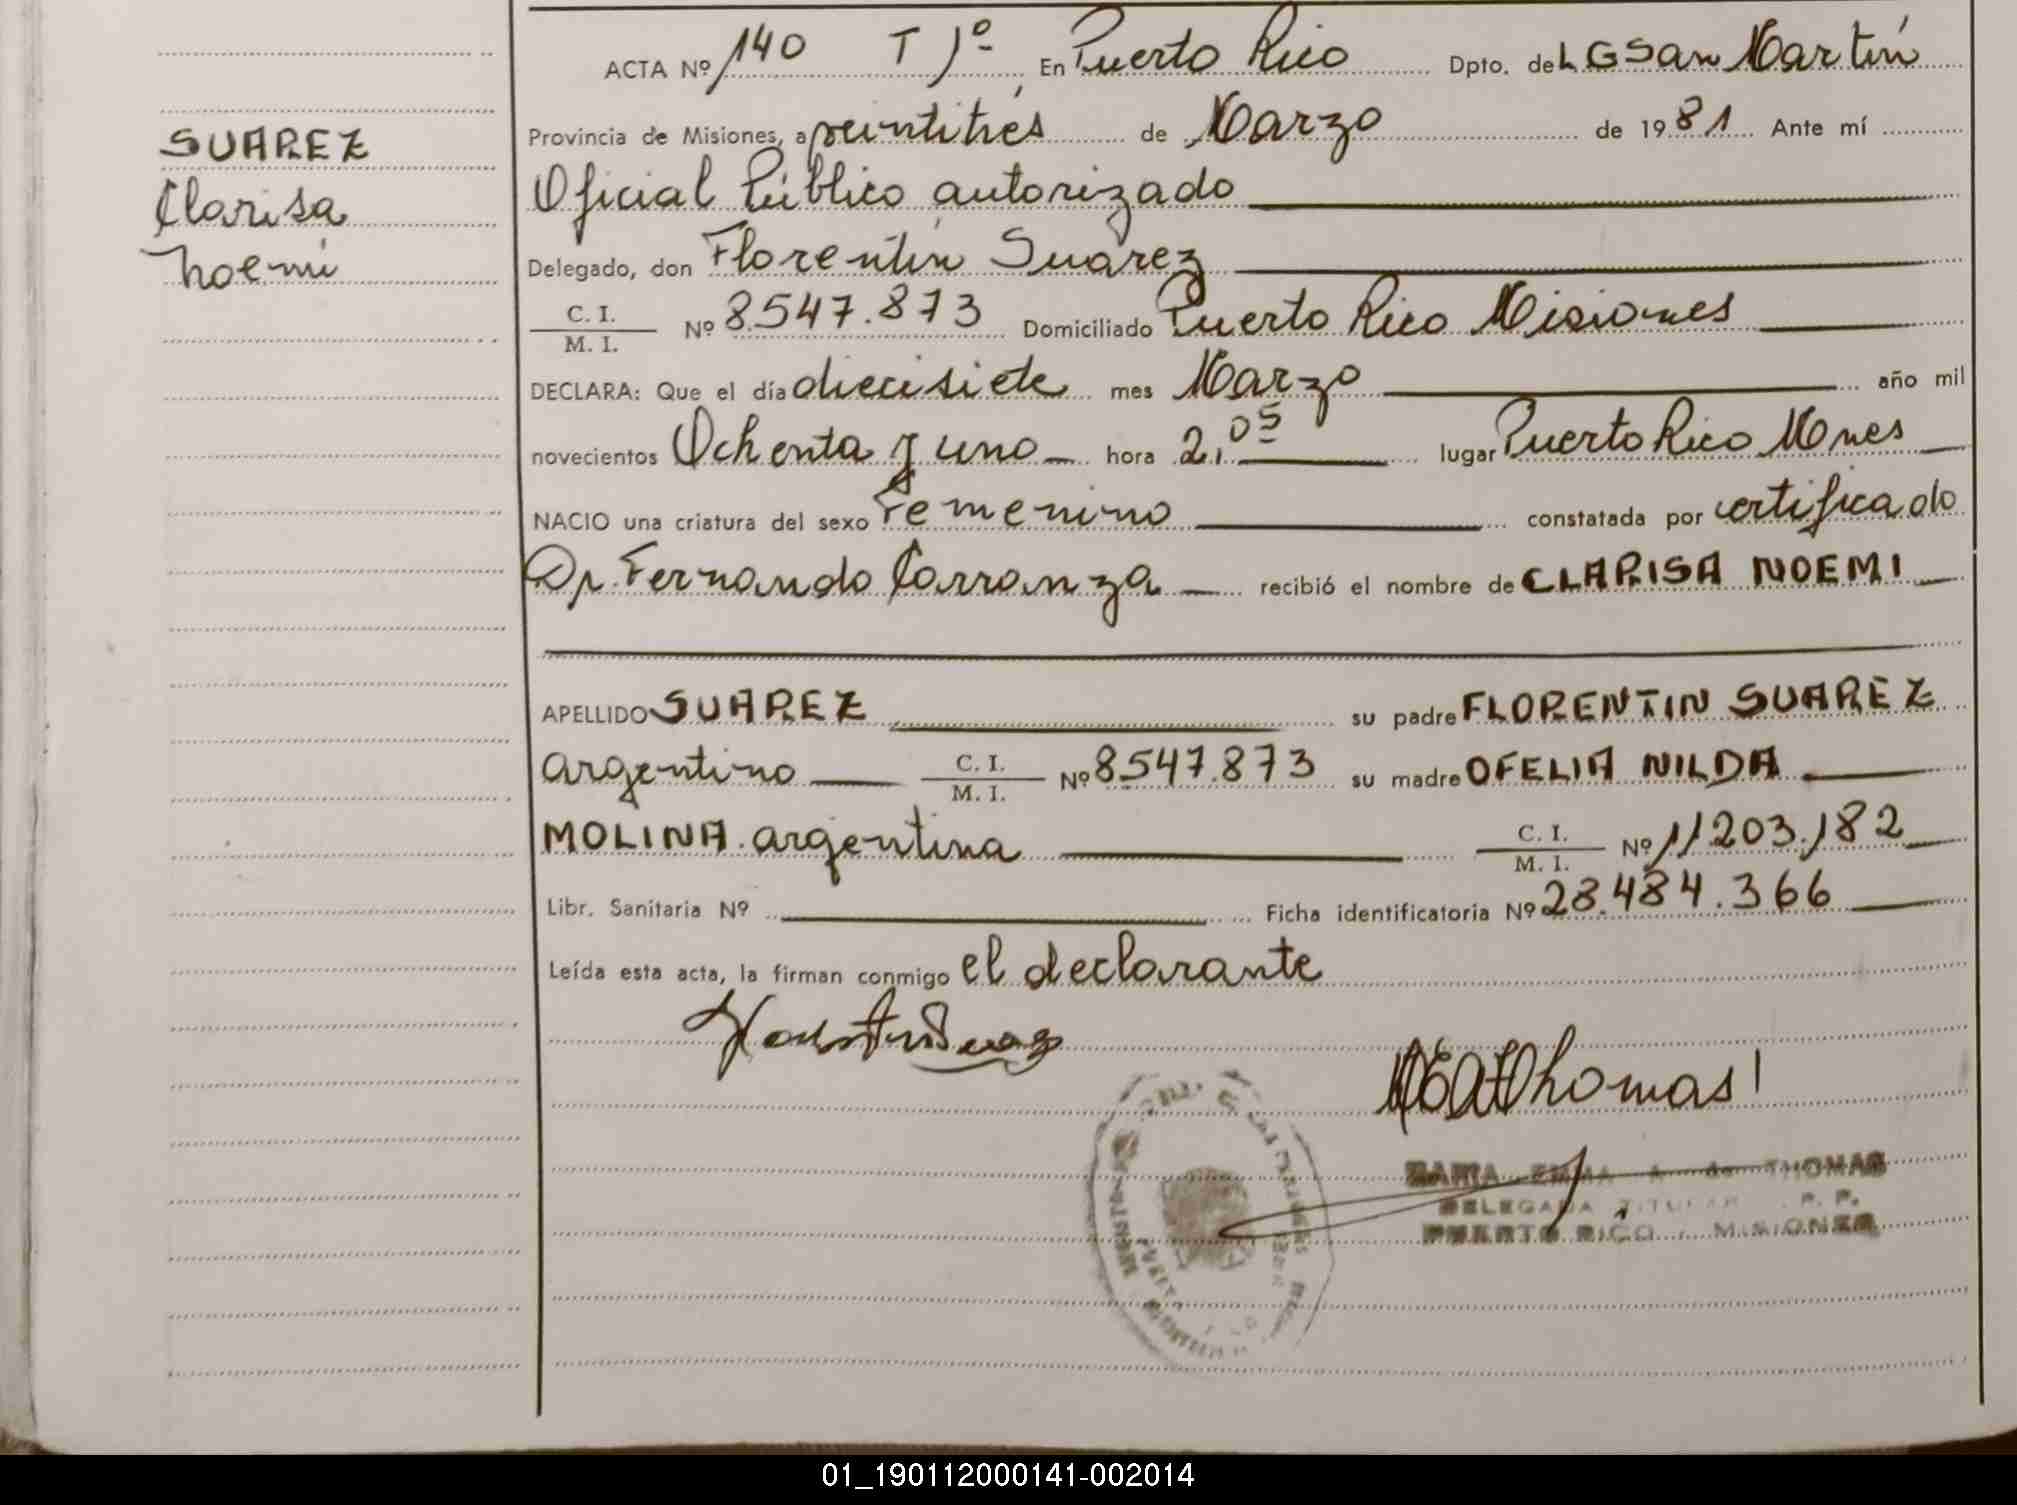 ACTA Nº 140 T 1º En Puerto Rico Dpto. de L G San Martín
SUAREZ
Clarisa
Noemi
Provincia de Misiones, a veintitrés de Marzo de 1981 Ante mí
Oficial Público autorizado
Delegado, don Florentín Suárez
C. I.
M. I. Nº 8.547.873 Domiciliado Puerto Rico Misiones
DECLARA: Que el día diecisiete mes Marzo año mil
novecientos Ochenta y uno hora 2,05 lugar Puerto Rico Mnes
NACIO una criatura del sexo Femenino constatada por certificado
Dr. Fernando Carranza recibió el nombre de CLARISA NOEMI
APELLIDO SUAREZ su padre FLORENTIN SUAREZ
argentino C. I.
M. I. Nº 8.547.873 su madre OFELIA NILDA
MOLINA argentina C. I.
M. I. Nº 11.203.182
Libr. Sanitaria Nº Ficha identificatoria Nº 28.484.366
Leída esta acta, la firman conmigo el declarante
Thomas
MARIA EMMA A. de THOMAS
DELEGADA TITULAR R. P.
PUERTO RICO - MISIONES
01_190112000141-002014